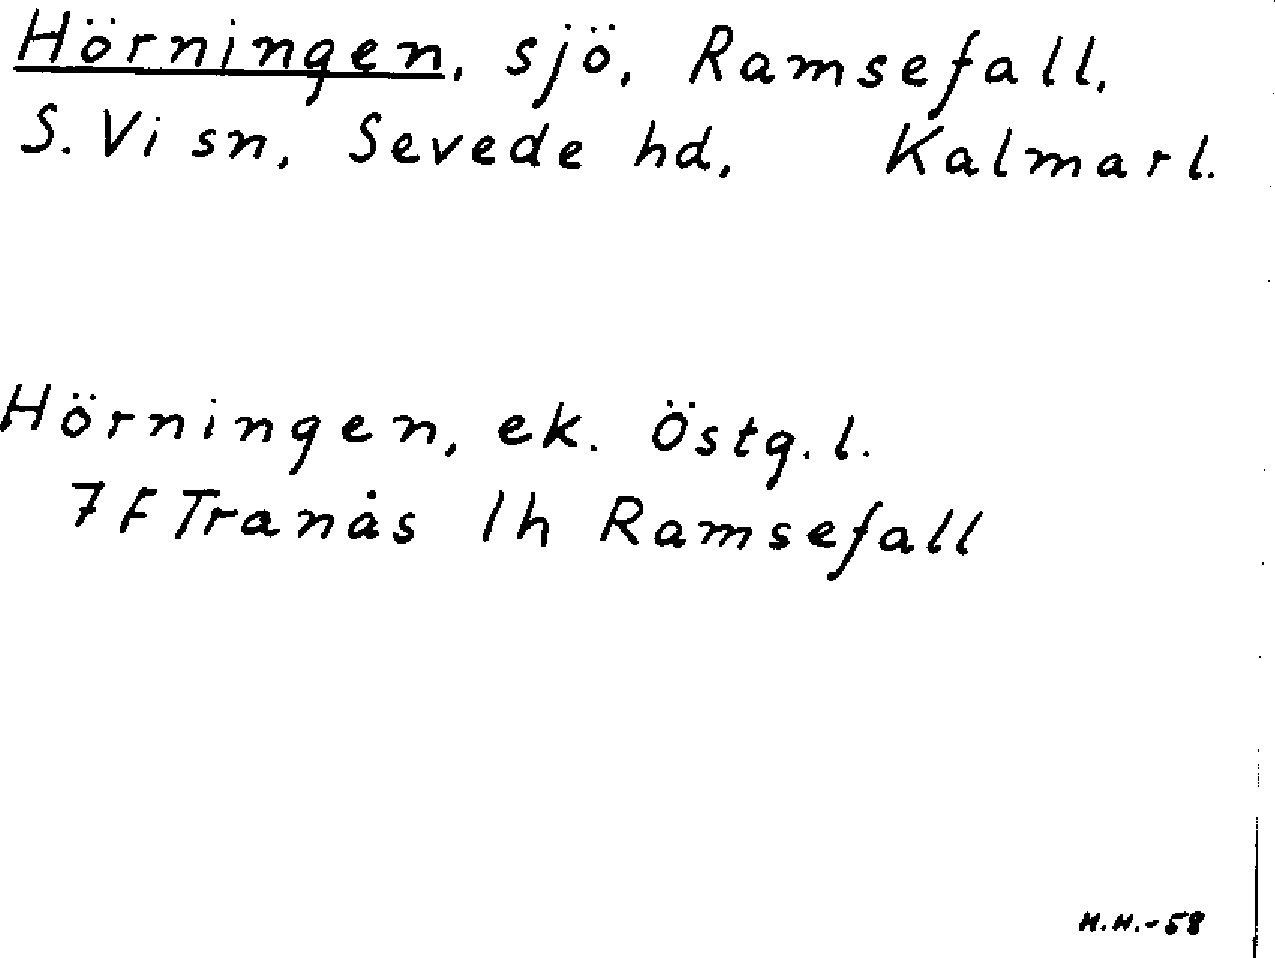 Hörningen, sjö, Ramsefall,
S. Vi sn, Sevede hd, Kalmar l.
Hörningen, ek. Östg. l.
7 F Tranås 1h Ramsefall
H.H.-58